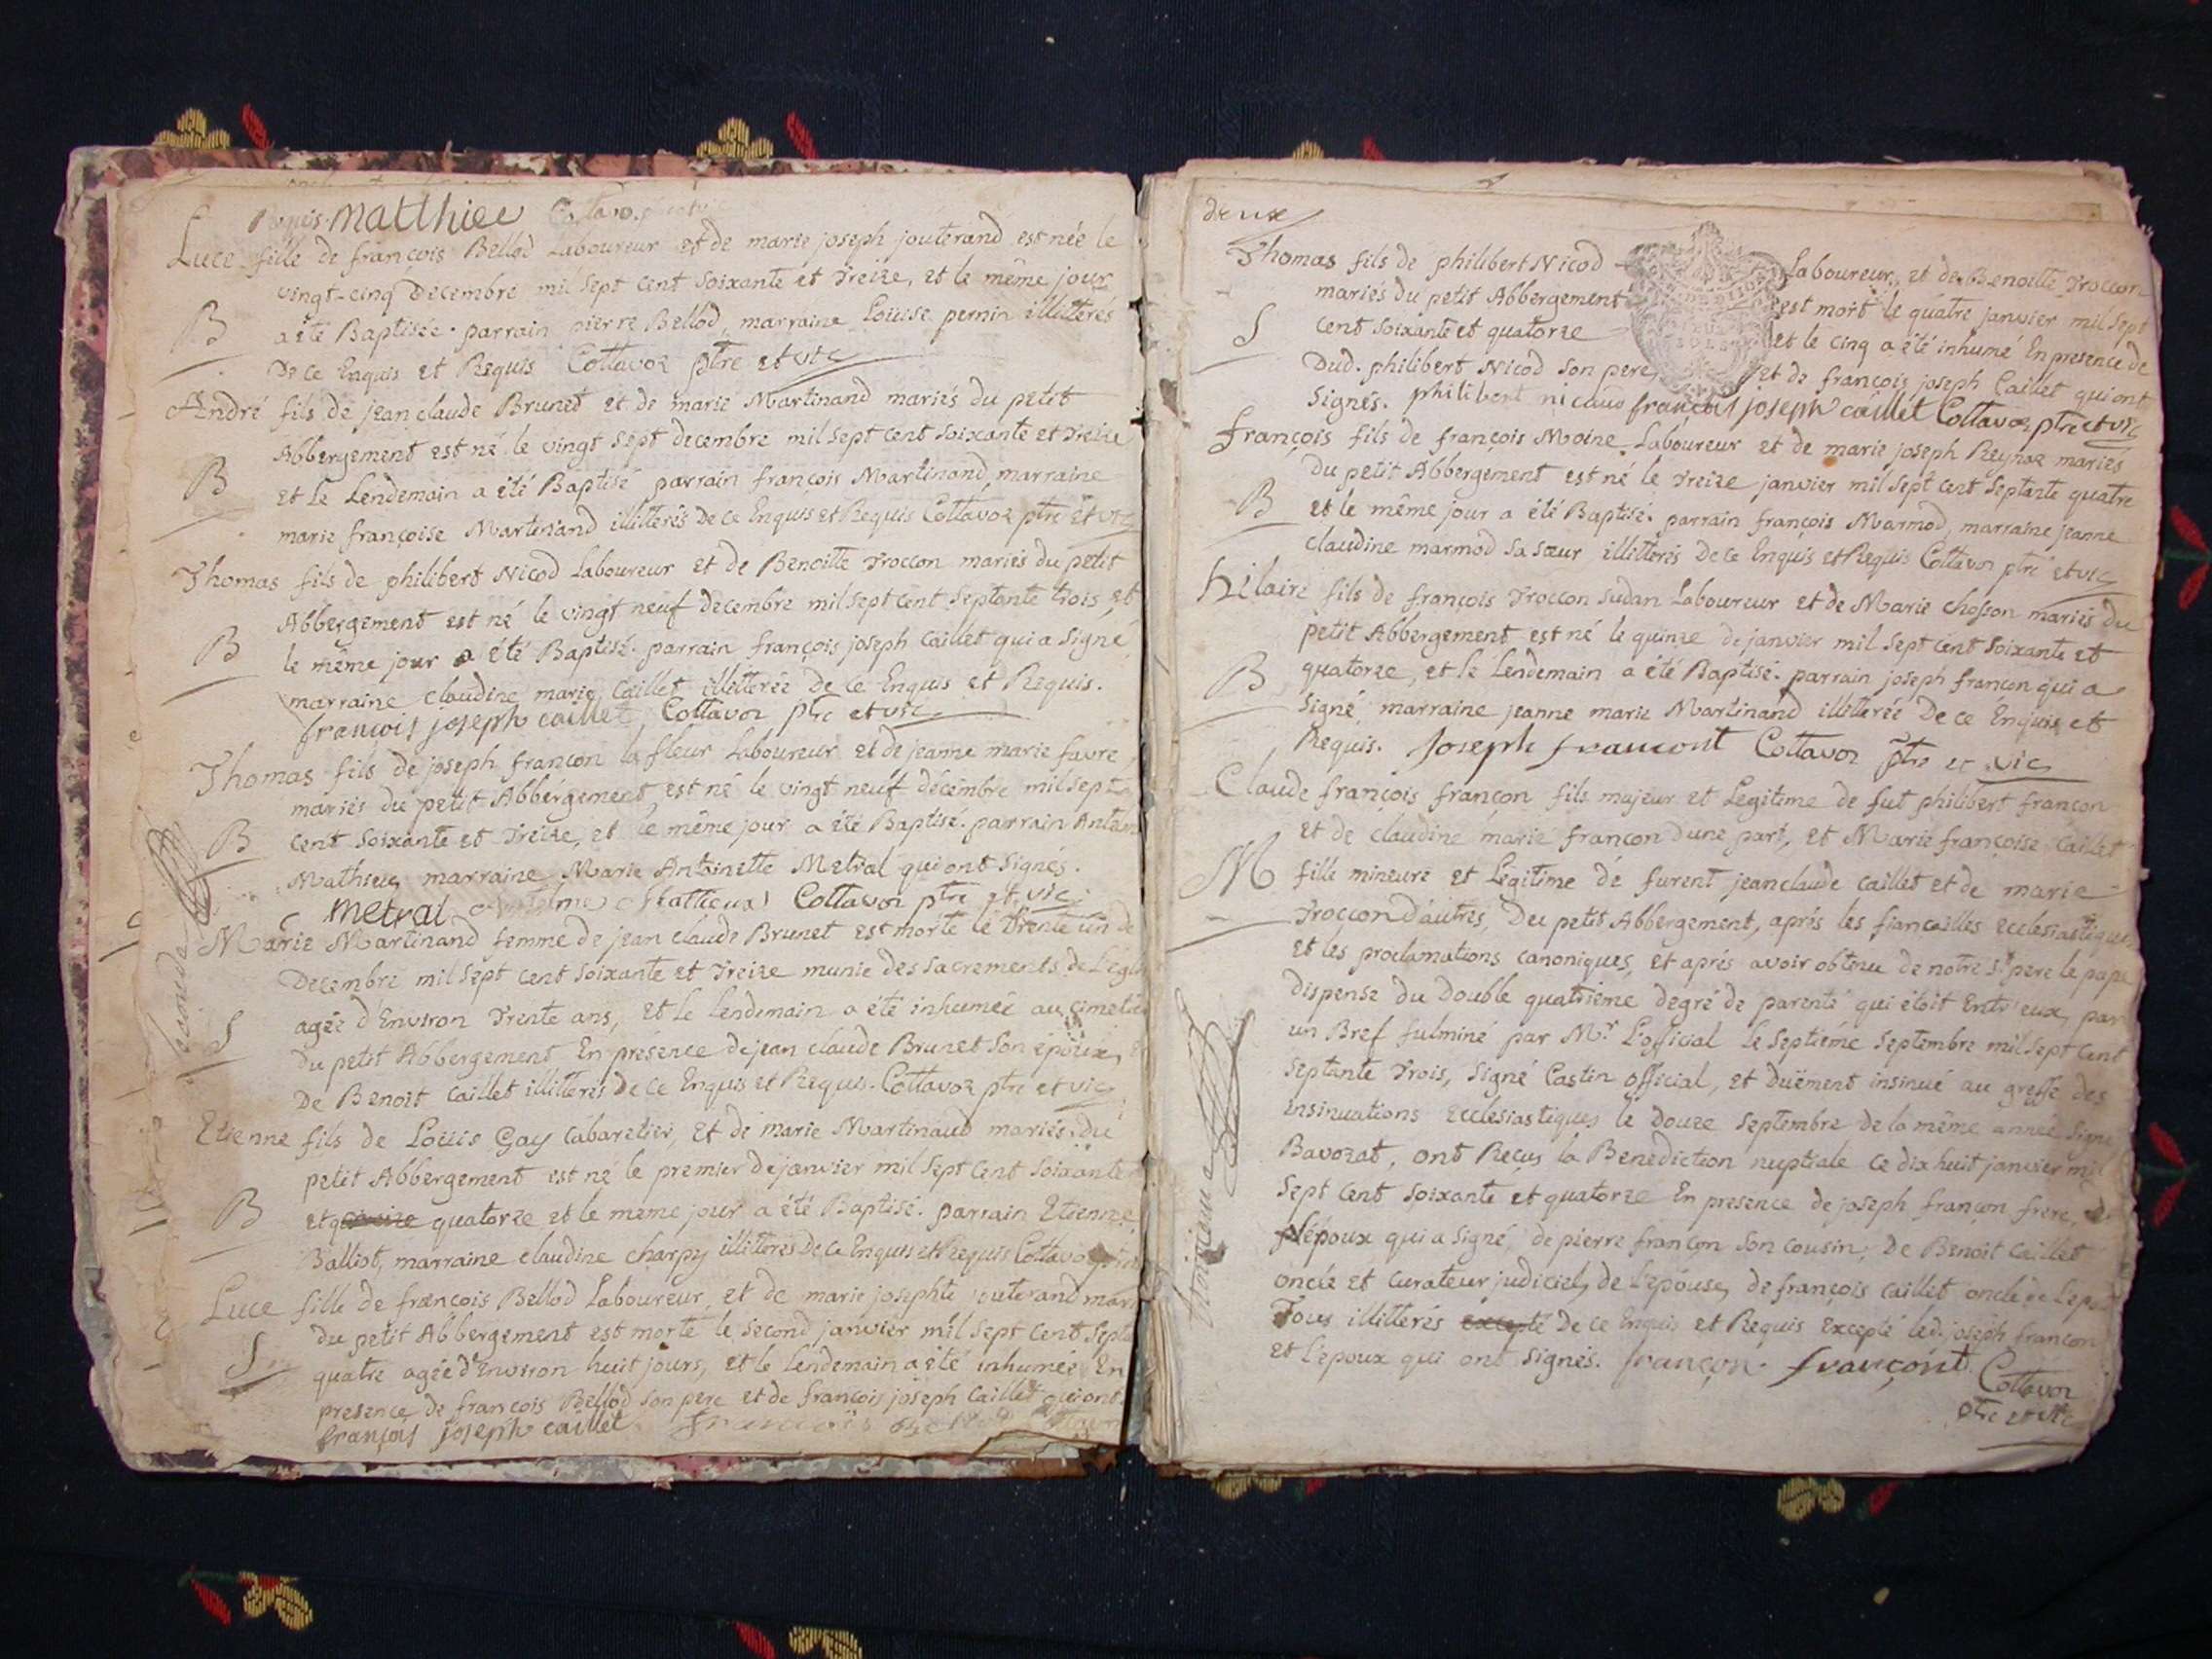 Requis. Matthieu Cottavoz
Luce fille de françois Bellod Laboureur et de marie joseph jouterand est née le
vingt-cinq Decembre mil sept cent soixante et Treize, et le même jour
B
a été Baptisée. parrain pierre Bellod, marraine Louise pernin illitterés
De ce Enquis et Requis Cottavoz ptre et vic
André fils de jean claude Brunet et de marie Martinand mariés du petit
Abbergement est né le vingt sept decembre mil sept cent soixante et Treize
B
et le Lendemain a été Baptisé parrain françois Martinand, marraine
marie françoise Martinand illitterés De ce Enquis et Requis Cottavoz ptre et vic
Thomas fils de philibert Nicod Laboureur et de Benoitte Troccon mariés du petit
Abbergement est né le vingt neuf decembre mil sept cent septante trois, et
B
le même jour a été Baptisé. parrain françois joseph Caillet qui a signé,
marraine claudine marie Caillet illitterée De ce Enquis et Requis.
françois joseph caillet Cottavoz ptre et vic
Thomas fils de joseph françon la fleur Laboureur et de jeanne marie favre
mariés du petit Abbergement est né le vingt neuf décembre mil sept
B
cent soixante et Treize, et le même jour a été Baptisé. parrain
Mathieu, marraine Marie Antoinette Metral qui ont signés.
metral Cottavoz ptre et vic
Marie Martinand femme de jean claude Brunet est morte le Trente un de
Decembre mil sept cent soixante et Treize munie des sacrements de
agée d'Environ Trente ans, et le Lendemain a été inhumée au
S
du petit Abbergement En présence de jean claude Brunet son époux,
De Benoit Caillet illitterés de ce Enquis et Requis. Cottavoz ptre et vic
Etienne fils de Loüis Gay Cabaretier, et de marie Martinaud mariés du
petit Abbergement est né le premier de janvier mil sept cent soixante
B
et quatorze et le même jour a été Baptisé. parrain Etienne
Balliot, marraine claudine charpy illitterés De ce Enquis et Requis Cottavoz
Luce fille de françois Bellod Laboureur, et de marie josephte jouterand
du petit Abbergement est morte le second janvier mil sept cent
S
quatre agée d'Environ huit jours, et le Lendemain a été inhumée En
presence de françois Bellod son pere et de françois joseph Caillet qui ont
françois joseph caillet
seconde
deux
Thomas fils de philibert Nicod Laboureur, et de Benoitte Troccon
mariés du petit Abbergement est mort le quatre janvier mil sept
S
cent soixante et quatorze et le cinq a été inhumé En presence de
Dud. philibert Nicod son pere, et de françois joseph Caillet qui ont
signés. philibert nicaud françois joseph caillet Cottavoz ptre et vic
françois fils de françois Moine Laboureur et de marie joseph Reynaz mariés
du petit Abbergement est né le Treize janvier mil sept cent septante quatre
B
et le même jour a été Baptisé. parrain françois Marmod, marraine jeanne
claudine marmod sa sœur illitterés De ce Enquis et Requis Cottavoz ptre et vic
hilaire fils de françois Troccon sudan Laboureur et de Marie Chosson mariés du
petit Abbergement est né le quinze de janvier mil sept cent soixante et
B
quatorze, et le Lendemain a été Baptisé. parrain joseph françon qui a
signé, marraine jeanne marie Martinand illitterée De ce Enquis et
Requis. Joseph françont Cottavoz ptre et vic
Claude françois françon fils majeur et Legitime de fut philibert françon
et de claudine marie françon dune part, et Marie françoise Caillet
M
fille mineure et Légitime de furent jean claude Caillet et de marie
Troccon d'autres, Du petit Abbergement, après les fiançailles ecclesiastiques
et les proclamations canoniques, et aprés avoir obtenu de notre St pere le pape
dispense du double quatrième degré de parenté qui étoit Entr'eux, par
un Bref fulminé par Mr L'official le septiéme septembre mil sept cent
septante Trois, signé Castin official, et duëment insinué au greffe des
insinuations Ecclésiastiques le Douze septembre de la même année signé
Bavozat, ont Reçus la Benediction nuptiale ce dix huit janvier mil
sept cent soixante et quatorze En presence de joseph françon frere, de
l'époux qui a signé, de pierre françon son cousin, De Benoit Caillet
oncle et curateur judiciel de L'épouse, de françois caillet oncle de
Tous illitterés excepté De ce Enquis et Requis Excepté led. joseph françon
et L'epoux qui ont signés. françon. françont. Cottavoz
ptre et vic